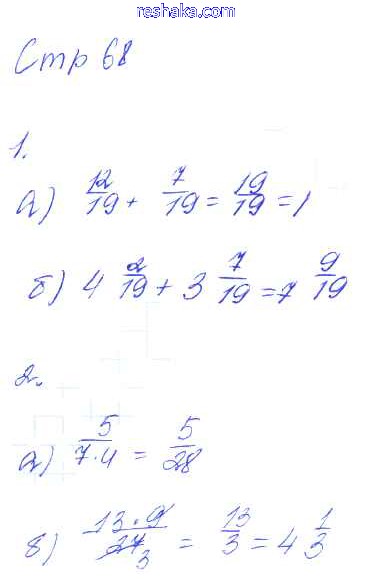 reshaka.com
Стр 68
1.
а) 12/19 + 7/19 = 19/19 = 1
б) 4 2/19 + 3 7/19 = 7 9/19
2.
а) 5/7·4 = 5/28
б) 13·9/27 3 = 13/3 = 4 1/3